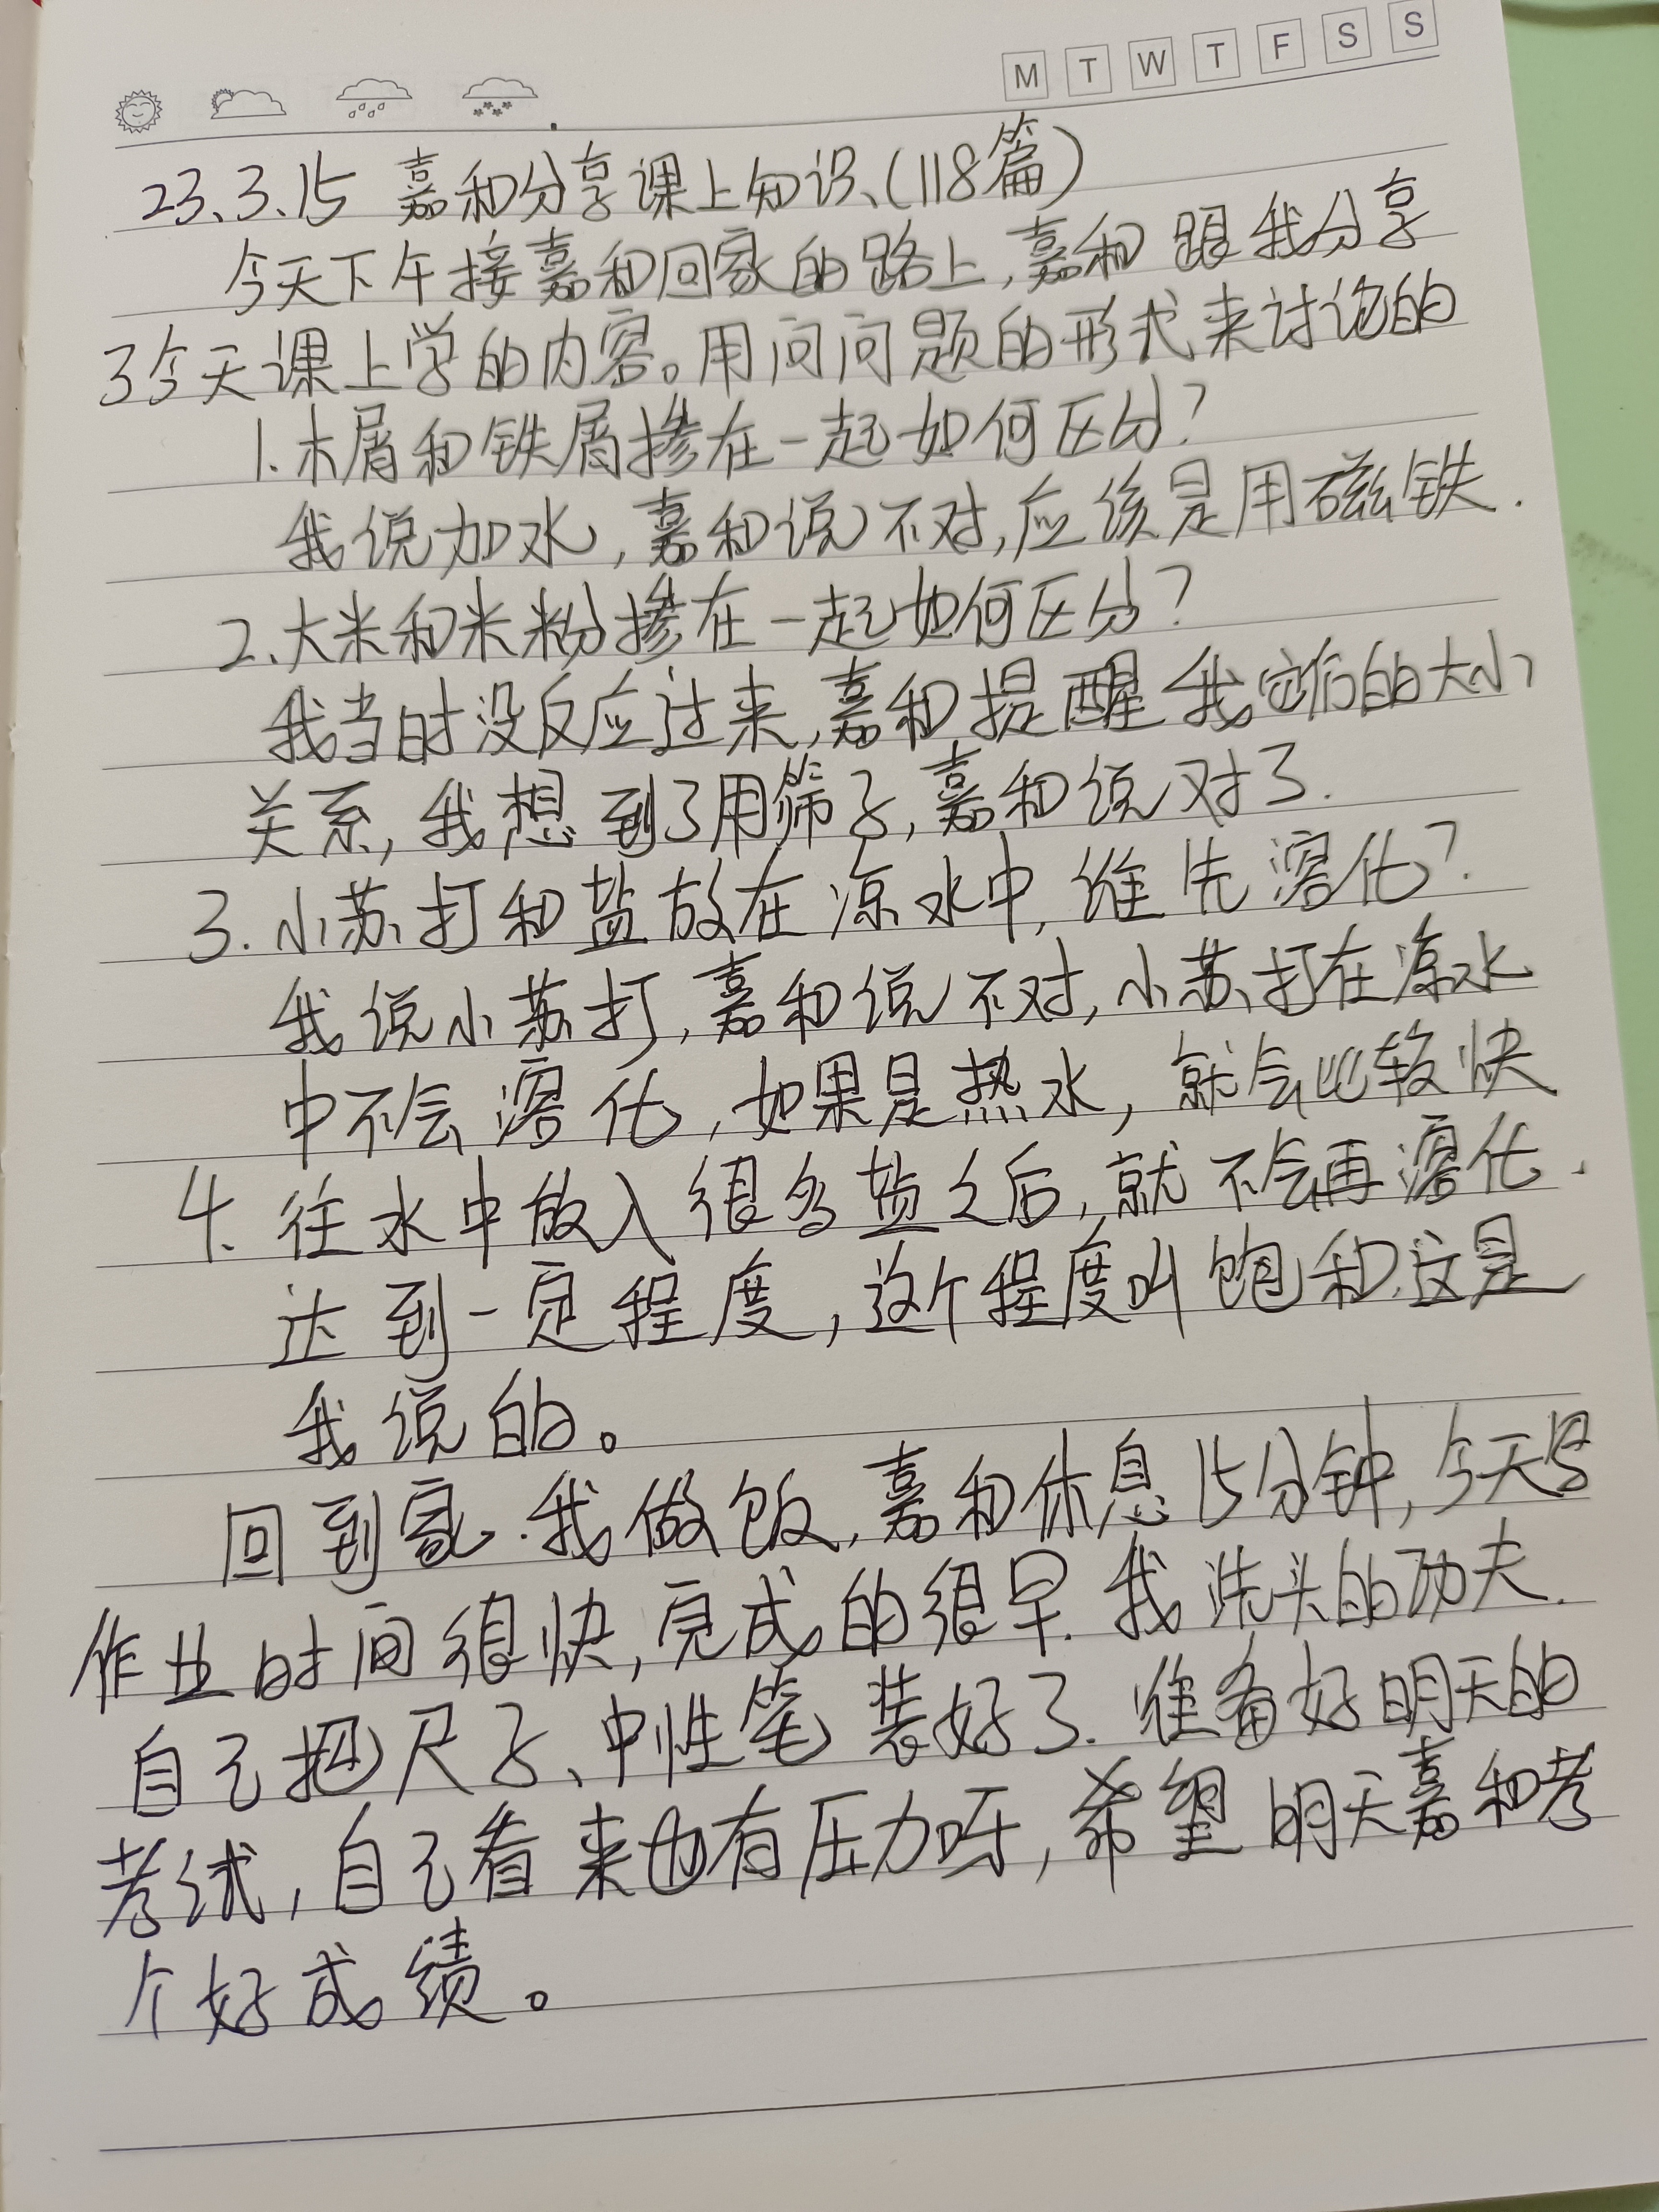 M T W T F S S
23、3、15 嘉和分享课上知识、(118篇)
今天下午接嘉和回家的路上,嘉和跟我分享
了今天课上学的内容。用问问题的形式来讨论的
1.木屑和铁屑掺在一起如何区分?
我说加水,嘉和说不对,应该是用磁铁.
2、大米和米粉掺在一起如何区分?
我当时没反应过来,嘉和提醒我它们的大小
关系,我想到了用筛子,嘉和说对了.
3.小苏打和盐放在凉水中,谁先溶化?
我说小苏打,嘉和说不对,小苏打在凉水
中不会溶化,如果是热水,就会比较快
4、往水中放入很多盐之后,就不会再溶化.
达到一定程度,这个程度叫饱和,这是
我说的。
回到家.我做饭,嘉和休息15分钟,今天写
作业时间很快,完成的很早.我洗头的功夫.
自己把尺子、中性笔装好了.准备好明天的
考试,自己看来也有压力呀,希望明天嘉和考
个好成绩。